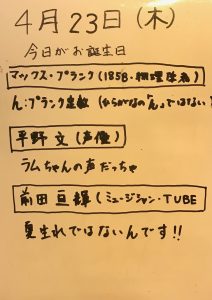 4月23日(木)
今日がお誕生日
マックス・プランク(1858・物理学者)
ん:プランク定数(ひらがなの「ん」ではない)
平野 文(声優)
ラムちゃんの声だっちゃ
前田 亘輝(ミュージシャン・TUBE
夏生れではないんです!!